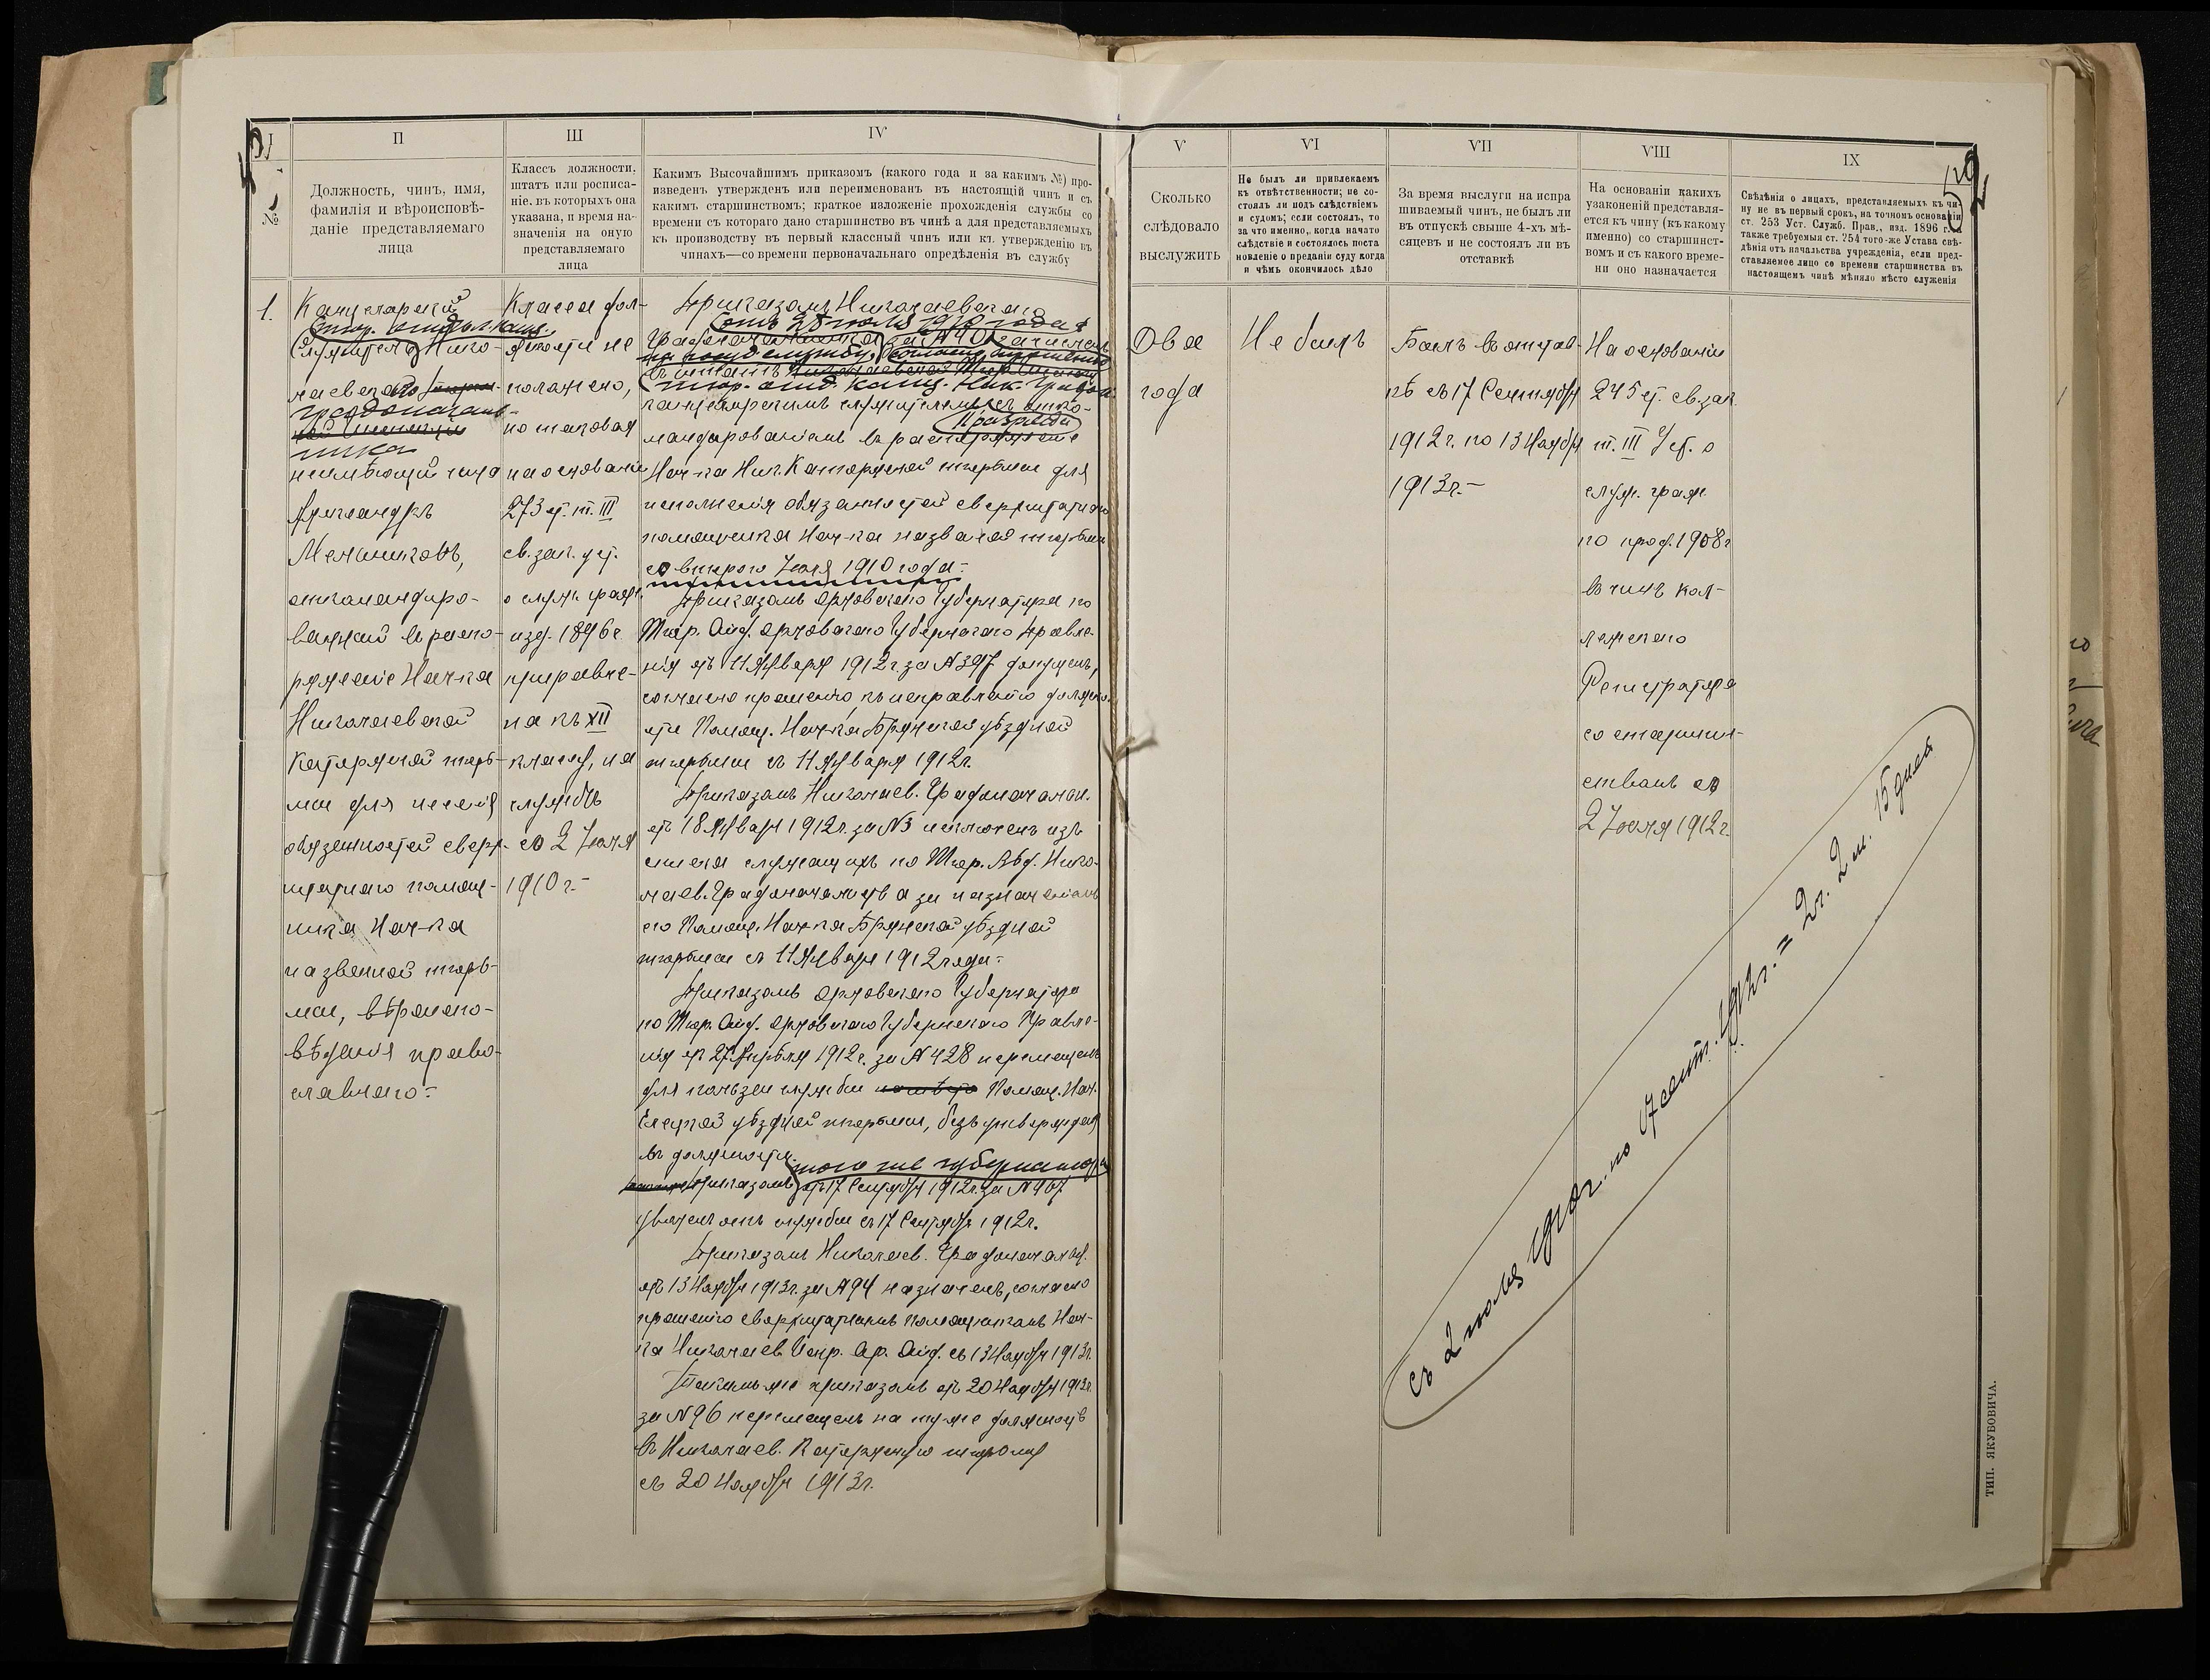 I
№
II
Должность, чинъ, имя,
фамилія и вѣроисповѣ-
даніе представляемаго
лица
III
Классъ должности,
штатъ или росписа-
ніе, въ которыхъ она
указана, и время на-
значенія на оную
представляемаго
лица
IV
Какимъ Высочайшимъ приказомъ (какого года и за какимъ №) про-
изведенъ утвержденъ или переименованъ въ настоящій чинъ и съ
какимъ старшинствомъ; краткое изложеніе прохожденія службы со
времени съ котораго дано старшинство въ чинѣ а для представляемыхъ
къ производству въ первый классный чинъ или къ утвержденію въ
чинахъ—со времени первоначальнаго опредѣленія въ службу
V
Сколько
слѣдовало
выслужить
VI
Не былъ ли привлекаемъ
къ отвѣтственности; не со-
стоялъ ли подъ слѣдствіемъ
и судомъ; если состоялъ, то
за что именно, когда начато
слѣдствіе и состоялось поста
новленіе о преданіи суду когда
и чѣмъ окончилось дѣло
VII
За время выслуги на испра
шиваемый чинъ, не былъ ли
въ отпускѣ свыше 4-хъ мѣ-
сяцевъ и не состоялъ ли въ
отставкѣ
VIII
На основаніи какихъ
узаконеній представля-
ется къ чину (къ какому
именно) со старшинст-
вомъ и съ какого време-
ни оно назначается
IX
Свѣдѣнія о лицахъ, представляемыхъ къ чи-
ну не въ первый срокъ, на точномъ основаніи
ст. 253 Уст. Служб. Прав., изд. 1896 г. а
также требуемыя ст. 254 того-же Устава свѣ-
дѣнія отъ начальства учрежденія, если пред-
ставляемое лицо со времени старшинства въ
настоящемъ чинѣ мѣняло мѣсто служенія
1.
Канцлярскій
тюр. отдѣл. канц.
Служитель Нико-
лаевскаго
градоначаль-
ника
неимѣющій чина
Александръ
Меньшиковъ,
откомандиро-
ванный въ распо-
ряженіе Нач-ка
Николаевской
Каторжной тюрь-
мы для несенія
обязанностей сверх-
штатнаго помощ-
ника Нач-ка
названной тюрь-
мы, вѣроиспо-
вѣданія право-
славнаго.-
Класса дол-
жности не
положено,
но таковая
на основаніи
273 ст. т. III
св. зак. уст.
о служ. граж.
изд. 1896 г.
приравне-
на къ XII
классу, на
службѣ
со 2 Іюля
1910 г.-
Приказомъ Николаевскаго
отъ 28 іюля 1910 года
Градоначальника за № 40 зачислен
на госуд. службу, согласно прошенію
въ штатъ
тюр. отд. канц. Ник. Градон.
канцелярскимъ служителемъ съ отко-
II разряда
мандированіемъ въ распоряженіе
Нач-ка Ник. Каторжной тюрьмы для
исполненія обязанностей сверхштатнаго
помощника Нач-ка названной тюрьмы
со второго Іюля 1910 года.-
Приказомъ Орловскаго Губернатора по
Тюр. Отд. Орловскаго Губернскаго Правле-
нія отъ 11 Января 1912 г. за № 397 допущенъ,
согласно прошенію, къ исправленію должно-
сти Помощ. Нач-ка Брянской уѣздной
тюрьмы съ 11 Января 1912 г.
Приказомъ Николаев. Градоначальн.
отъ 18 Января 1912 г. за № 3 исключенъ изъ
списка служащихъ по Тюр. Вѣд. Нико-
лаев. Градоначальства за назначеніемъ
его Помощ. Нач-ка Брянской уѣздной
тюрьмы съ 11 Января 1912 года.-
Приказомъ Орловскаго Губернатора
по Тюр. Отд. Орловскаго Губернскаго Правле-
нія отъ 27 Апрѣля 1912 г. за № 428 перемещенъ
для пользы службы Помощ. Нач.
Елецкой уѣздной тюрьмы, безъ утвержденія
въ должности.
того же губернатора
Приказомъ отъ 17 Сентября 1912 г. за № 467
уволенъ отъ службы съ 17 Сентября 1912 г.
Приказомъ Николаев. Градоначальн.
отъ 13 Ноября 1913 г. за № 94 назначенъ, согласно
прошенію сверхштатнымъ помощникомъ Нач-
ка Николаев. Испр. Ар. Отд. съ 13 Ноября 1913 г.
Такимъ же приказомъ отъ 20 Ноября 1913 г.
за № 96 перемещенъ на ту-же должность
въ Николаев. Каторжную тюрьму
съ 20 Ноября 1913 г.
Два
года
Не былъ
Былъ въ отстав-
кѣ съ 17 Сентября
1912 г. по 13 Ноября
1913 г.-
На основаніи
245 ст. св. зак.
т. III Уст. о
служ. граж.
по прод. 1908 г
въ чинъ кол-
лежскаго
Регистратора
со старшин-
ствомъ со
2 Іюля 1912 г.
съ 2 іюля 1910 г. по 17 сент. 1912 г. = 2 г. 2 м. 15 дней
ТИП. ЯКУБОВИЧА.